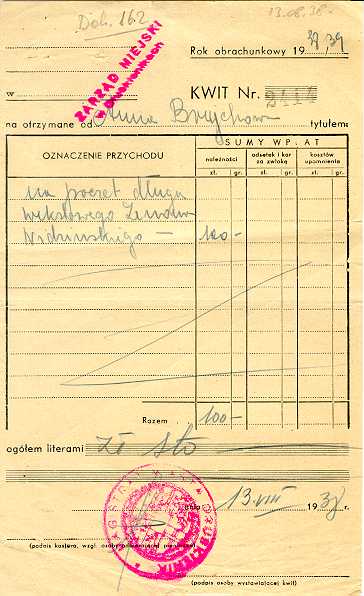 Dob. 162
13.08.38.
ZARZĄD MIEJSKI
Rok obrachunkowy 1938/39
w
KWIT Nr.
na otrzymane od Anna tytułem:
OZNACZENIE PRZYCHODU
SUMY WPŁAT
należności
odsetek i kar za zwłokę
kosztów upomnienia
zł. gr. zł. gr. zł. gr.
na poczet długu
wekslowego Zenona
100-
Razem 100-
ogółem literami zł sto
dnia 13.VIII 1938 r.
(podpis kasjera, wzgl. osoby
(podpis osoby wystawiającej kwit)